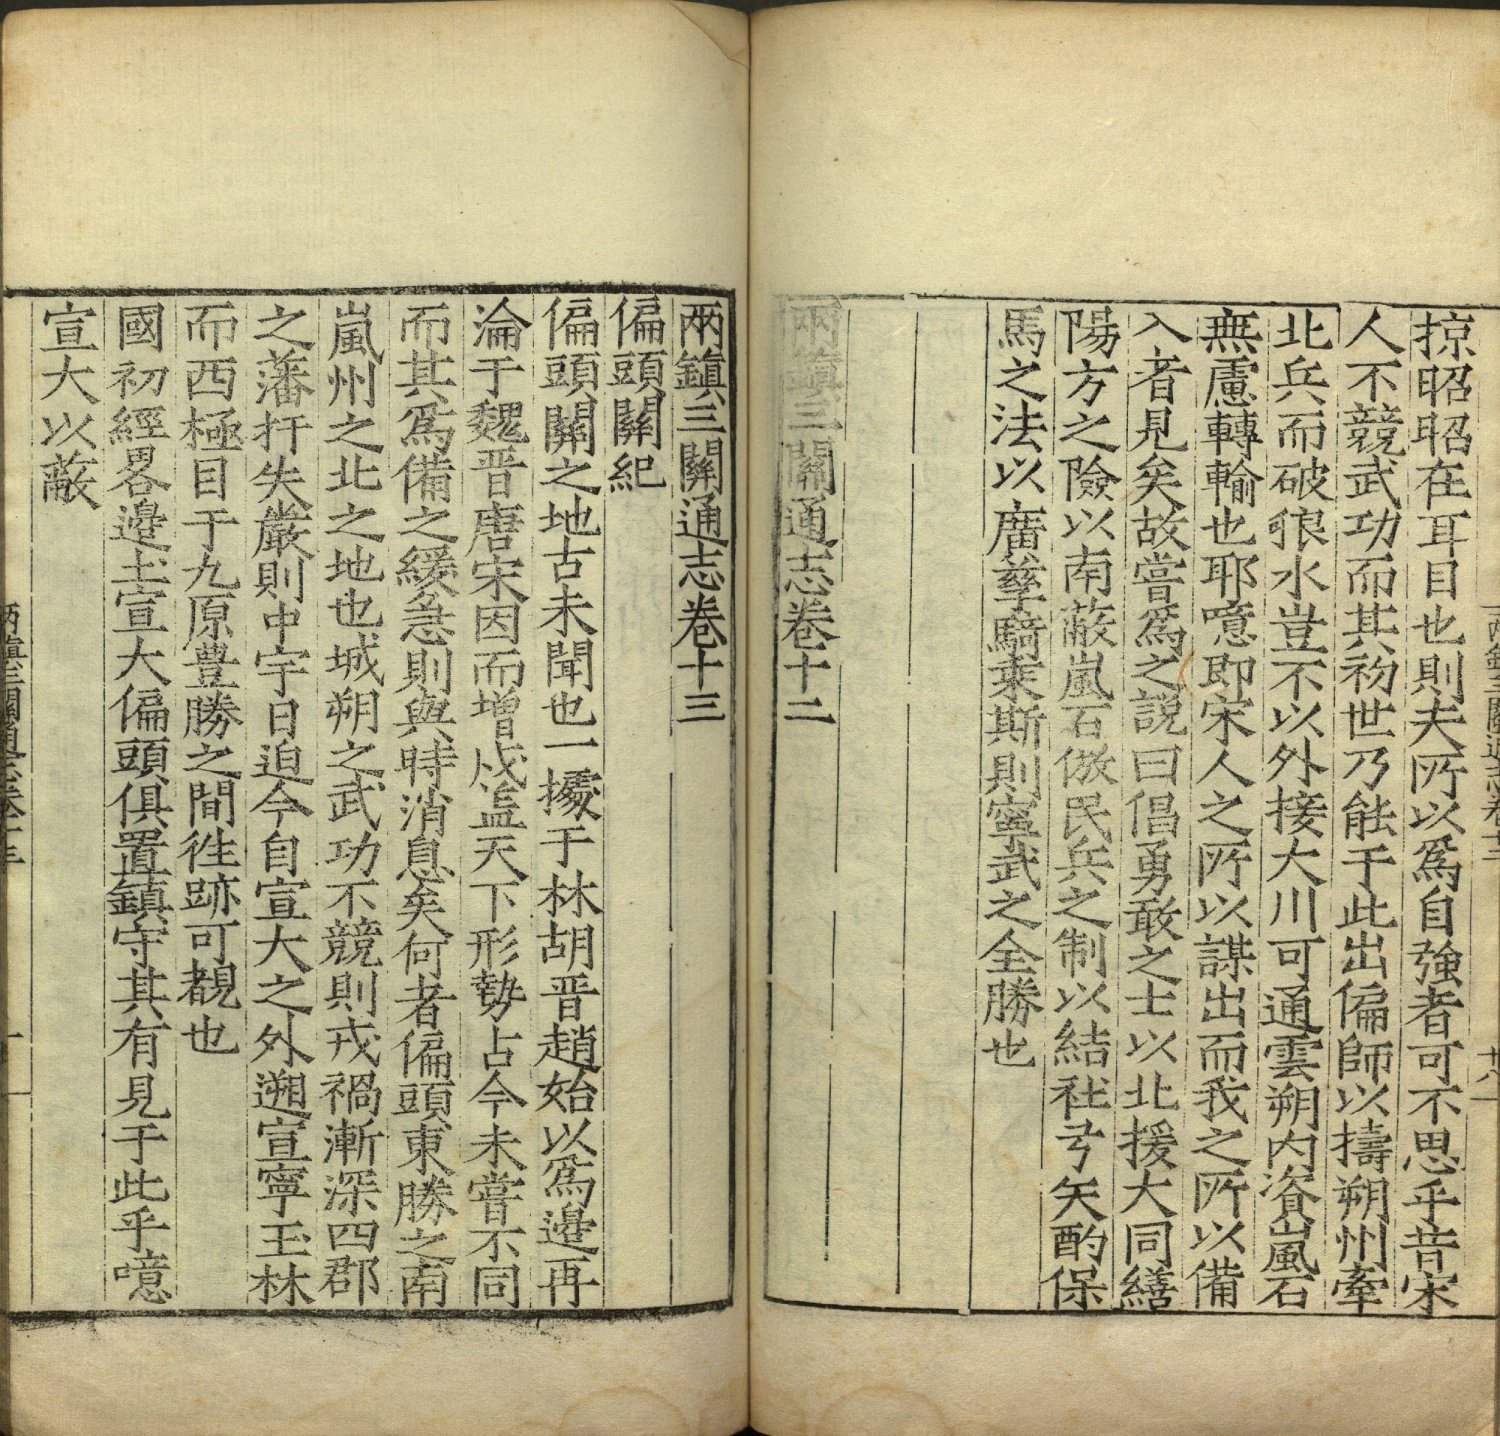 掠昭昭在耳目也則夫所以爲自強者可不思乎昔宋
人不競武功而其初世乃能于此出偏師以擣朔州牽
北兵而破狼水豈不以外接大川可通雲朔内資嵐石
無慮轉輸也耶噫即宋人之所以謀出而我之所以備
入者見矣故嘗爲之說曰倡勇敢之士以北援大同繕
陽方之險以南蔽嵐石倣民兵之制以結社弓矢酌保
馬之法以廣孳騎乘斯則寧武之全勝也
兩鎮三關通志卷十二
兩鎮三關通志卷十三
偏頭關紀
偏頭關之地古未聞也一擾于林胡晋趙始以爲邉再
淪于魏晋唐宋因而增戍盖天下形勢占今未嘗不同
而其爲備之緩急則與時消息矣何者偏頭東勝之南
嵐州之北之地也城朔之武功不競則戎禍漸深四郡
之藩扞失嚴則中宇日迫今自宣大之外遡宣寧玉林
而西極目于九原豊勝之間徃跡可覩也
國初經畧邉圡宣大偏頭俱置鎮守其有見于此乎噫
宣大以蔽
兩鎮三關通志卷十三
一